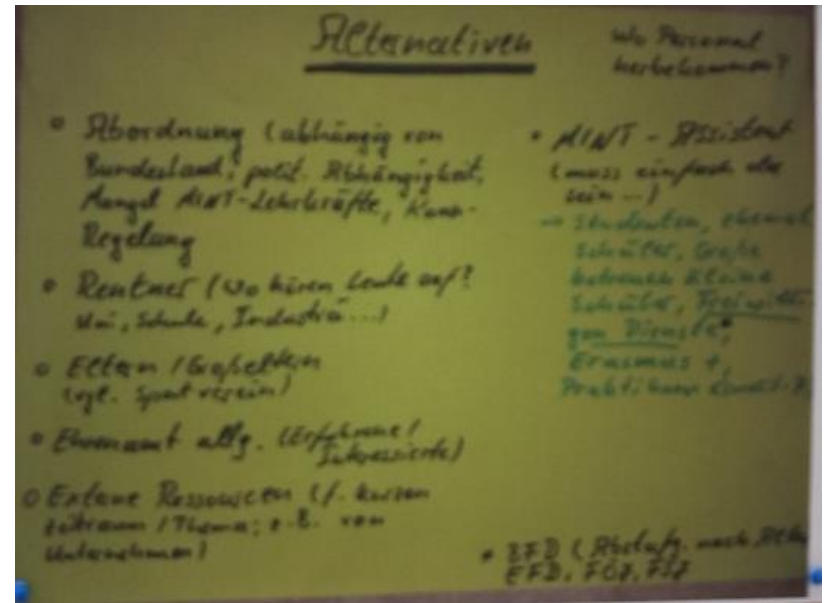 Alternativen
Wo Personal
herbekommen?
o Abordnung (abhängig von
Bundesland, polit. Abhängigkeit,
Mangel MINT-Lehrkräfte, Kann-
Regelung
o Rentner (wo hören Leute auf?
Uni, Schule, Industrie...)
o Eltern / Großeltern
(vgl. Sportverein)
o Ehrenamt allg. (Erfahrene /
Interessierte)
o Externe Ressourcen (f. kurzen
Zeitraum / Thema; z.B. von
Unternehmen)
• MINT-Assistent
(muss einfach
sein...)
→ Studenten, ehemal
Schüler, Große
betreuen kleine
Schüler, Freiwilli-
gen Dienste*,
Erasmus +,
* BFD (Abstufg. nach
EFD, FÖJ, FSJ